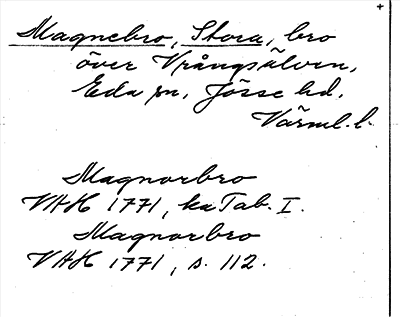 Magnebro, Stora, bro
över Vrångsälven,
Eda sn, Jösse hd,
Värml. l.
Magnorbro
VAH 1771, ka Tab. I.
Magnorbro
VAH 1771, s. 112.